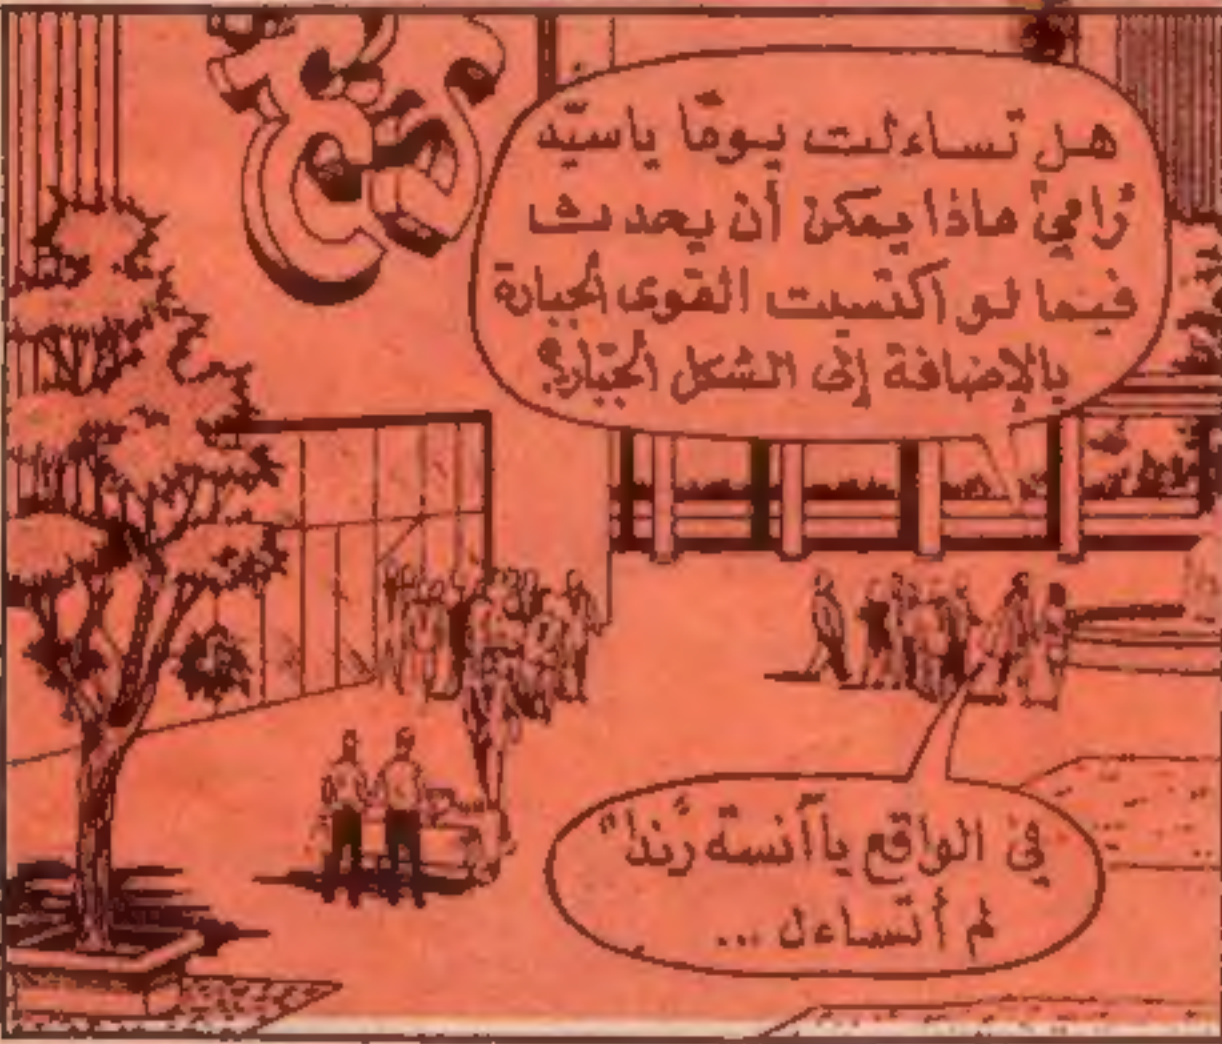 هل تساءلت يومًا ياسيّد
"رامي" ماذا يمكن أن يحدث
فيما لو اكتسبت القوى الجبارة
بالإضافة إلى الشكل الجبّار؟
في الواقع يا آنسة "رندا"
لم أتساءل ...